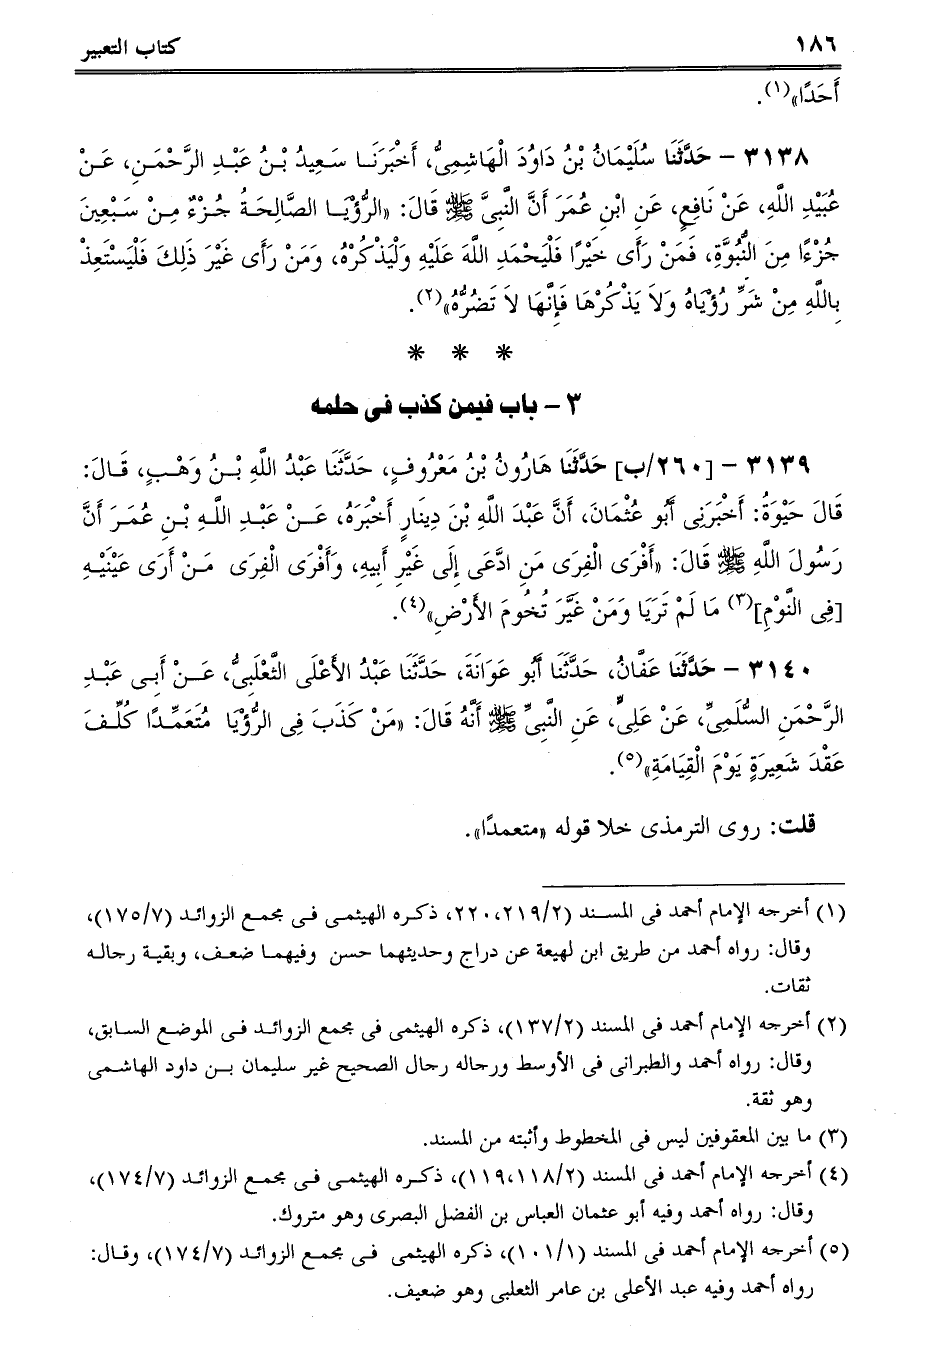 ١٨٦ كتاب التعبير
أَحَدًا»(١).
٣١٣٨ – حَدَّثَنَا سُلَيْمَانُ بْنُ دَاوُدَ الْهَاشِمِيُّ، أَخْبَرَنَا سَعِيدُ بْنُ عَبْدِ الرَّحْمَنِ، عَنْ
عُبَيْدِ اللَّهِ، عَنْ نَافِعٍ، عَنِ ابْنِ عُمَرَ أَنَّ النَّبِيَّ ﷺ قَالَ: «الرُّؤْيَا الصَّالِحَةُ جُزْءٌ مِنْ سَبْعِينَ
جُزْءًا مِنَ النُّبُوَّةِ، فَمَنْ رَأَى خَيْرًا فَلْيَحْمَدِ اللَّهَ عَلَيْهِ وَلْيَذْكُرْهُ، وَمَنْ رَأَى غَيْرَ ذَلِكَ فَلْيَسْتَعِذْ
بِاللَّهِ مِنْ شَرِّ رُؤْيَاهُ وَلاَ يَذْكُرْهَا فَإِنَّهَا لاَ تَضُرُّهُ»(٢).
* * *
٣ – باب فيمن كذب فى حلمه
٣١٣٩ – [٢٦٠/ب] حَدَّثَنَا هَارُونُ بْنُ مَعْرُوفٍ، حَدَّثَنَا عَبْدُ اللَّهِ بْنُ وَهْبٍ، قَالَ:
قَالَ حَيْوَةُ: أَخْبَرَنِى أَبُو عُثْمَانَ، أَنَّ عَبْدَ اللَّهِ بْنَ دِينَارٍ أَخْبَرَهُ، عَنْ عَبْدِ اللَّهِ بْنِ عُمَرَ أَنَّ
رَسُولَ اللَّهِ ﷺ قَالَ: «أَفْرَى الْفِرَى مَنِ ادَّعَى إِلَى غَيْرِ أَبِيهِ، وَأَفْرَى الْفِرَى مَنْ أَرَى عَيْنَيْهِ
[فِى النَّوْمِ](٣) مَا لَمْ تَرَيَا وَمَنْ غَيَّرَ تُخُومَ الأَرْضِ»(٤).
٣١٤٠ – حَدَّثَنَا عَفَّانُ، حَدَّثَنَا أَبُو عَوَانَةَ، حَدَّثَنَا عَبْدُ الأَعْلَى الثَّعْلَبِىُّ، عَنْ أَبِى عَبْدِ
الرَّحْمَنِ السُّلَمِىِّ، عَنْ عَلِىٍّ، عَنِ النَّبِىِّ ﷺ أَنَّهُ قَالَ: «مَنْ كَذَبَ فِى الرُّؤْيَا مُتَعَمِّدًا كُلِّفَ
عَقْدَ شَعِيرَةٍ يَوْمَ الْقِيَامَةِ»(٥).
قلت: روى الترمذى خلا قوله «متعمدًا».
(١) أخرجه الإمام أحمد فى المسند (٢١٩/٢، ٢٢٠)، ذكره الهيثمى فى مجمع الزوائد (١٧٥/٧)،
وقال: رواه أحمد من طريق ابن لهيعة عن دراج وحديثهما حسن وفيهما ضعف، وبقية رجاله
ثقات.
(٢) أخرجه الإمام أحمد فى المسند (١٣٧/٢)، ذكره الهيثمى فى مجمع الزوائد فى الموضع السابق،
وقال: رواه أحمد والطبرانى فى الأوسط ورجاله رجال الصحيح غير سليمان بن داود الهاشمى
وهو ثقة.
(٣) ما بين المعقوفين ليس فى المخطوط وأثبته من المسند.
(٤) أخرجه الإمام أحمد فى المسند (١١٨/٢، ١١٩)، ذكره الهيثمى فى مجمع الزوائد (١٧٤/٧)،
وقال: رواه أحمد وفيه أبو عثمان العباس بن الفضل البصرى وهو متروك.
(٥) أخرجه الإمام أحمد فى المسند (١٠١/١)، ذكره الهيثمى فى مجمع الزوائد (١٧٤/٧)، وقال:
رواه أحمد وفيه عبد الأعلى بن عامر الثعلبى وهو ضعيف.